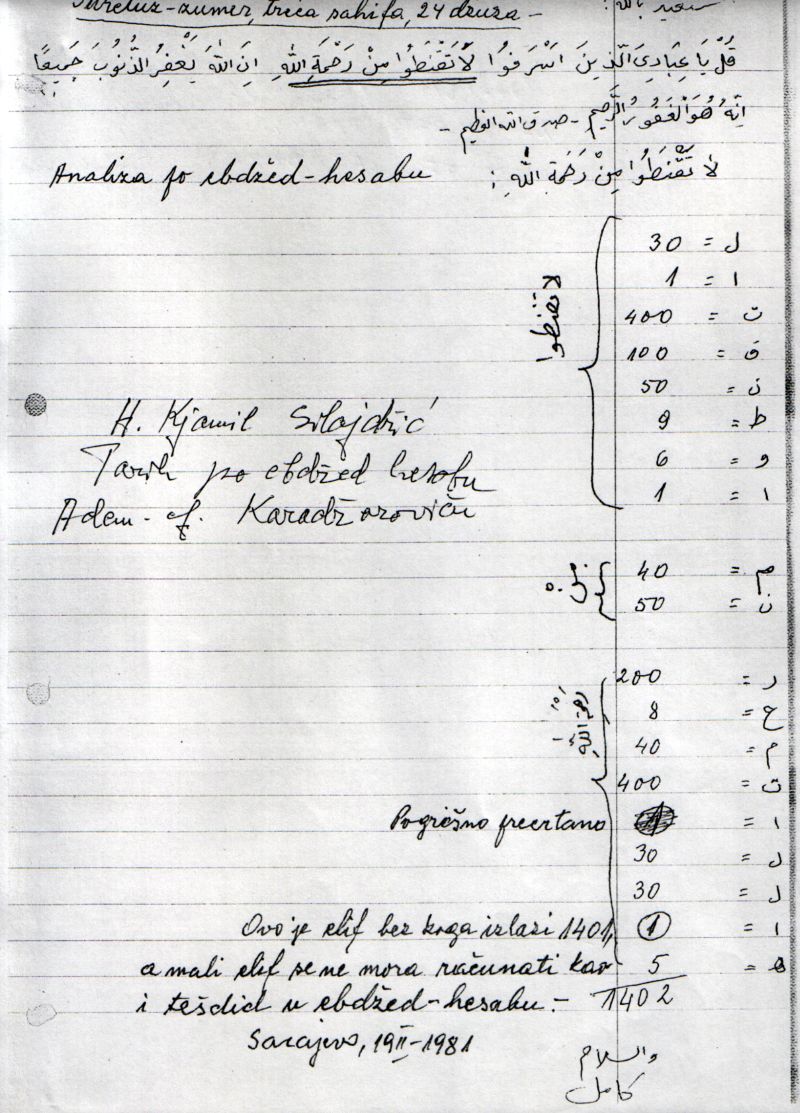 Suretuz-zumer, treća sahifa, 24 džuza -
قُلْ يَا عِبَادِيَ الَّذِينَ اَسْرَفُوا لَا تَقْنَطُوا مِنْ رَحْمَةِ اللّٰهِ اِنَّ اللّٰهَ يَغْفِرُ الذُّنُوبَ جَمِيعًا
اِنَّهُ هُوَ الْغَفُورُ الرَّحِيمُ - صدق الله العظيم -
Analiza po ebdžed-hesabu : لَا تَقْنَطُوا مِنْ رَحْمَةِ اللّٰهِ
ل = 30
ا = 1
ت = 400
ق = 100
ن = 50
ط = 9
و = 6
ا = 1
لا تقنطوا
H. Kjamil Silajdžić
Tarih po ebdžed hesabu
Adem-ef. Karadžozoviću
م = 40
ن = 50
مِنْ
ر = 200
ح = 8
م = 40
ت = 400
رحمة الله
Pogrešno precrtano 1 = ا
ل = 30
ل = 30
Ovo je elif bez koga izlazi 1401, 1 = ا
a mali elif se ne mora računati kao 5 = ه
i tešdid u ebdžed-hesabu. - 1402
Sarajevo, 19 II - 1981
والسلام
كامل